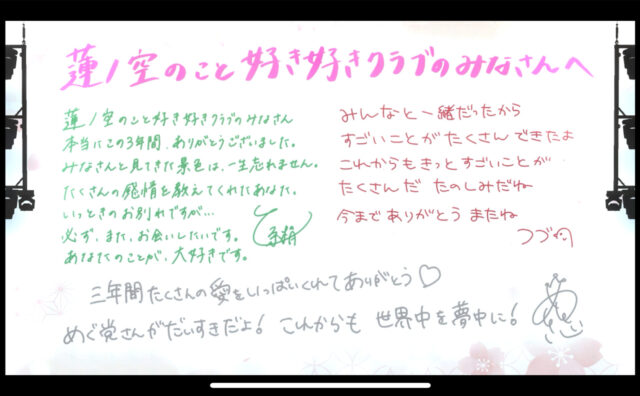 蓮ノ空のこと好き好きクラブのみなさんへ
蓮ノ空のこと好き好きクラブのみなさん
本当にこの3年間、ありがとうございました。
みなさんと見てきた景色は、一生忘れません。
たくさんの感情を教えてくれたあなた。
いっときのお別れですが…
必ず、また、お会いしたいです。
あなたのことが、大好きです。
みんなと一緒だったから
すごいことがたくさんできたよ
これからもきっとすごいことが
たくさんだ たのしみだね
今までありがとう またね
つづり
三年間たくさんの愛をいっぱいくれてありがとう♡
めぐ党さんがだいすきだよ! これからも 世界中を夢中に!